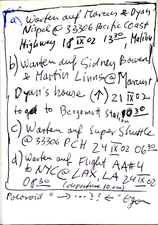 a) Warten auf Marcus & Dyan
Nispel @ 33306 Pacific Coast
Highway 18 IX 02 13 30 Malibu
b) Warten auf Sidney Bowen
& Martin Linns @ Marcus &
Dyan's house (↑) 21 IX 02
to go to Bergamot
c) Warten auf Super Shuttle
@ 33306 PCH 24 IX 02 0630
d) Warten auf Flight AA#4
to NYC @ LAX, LA 24 IX 02
0830 (departure 10 am)
Polaroid "→ ...?! ←"